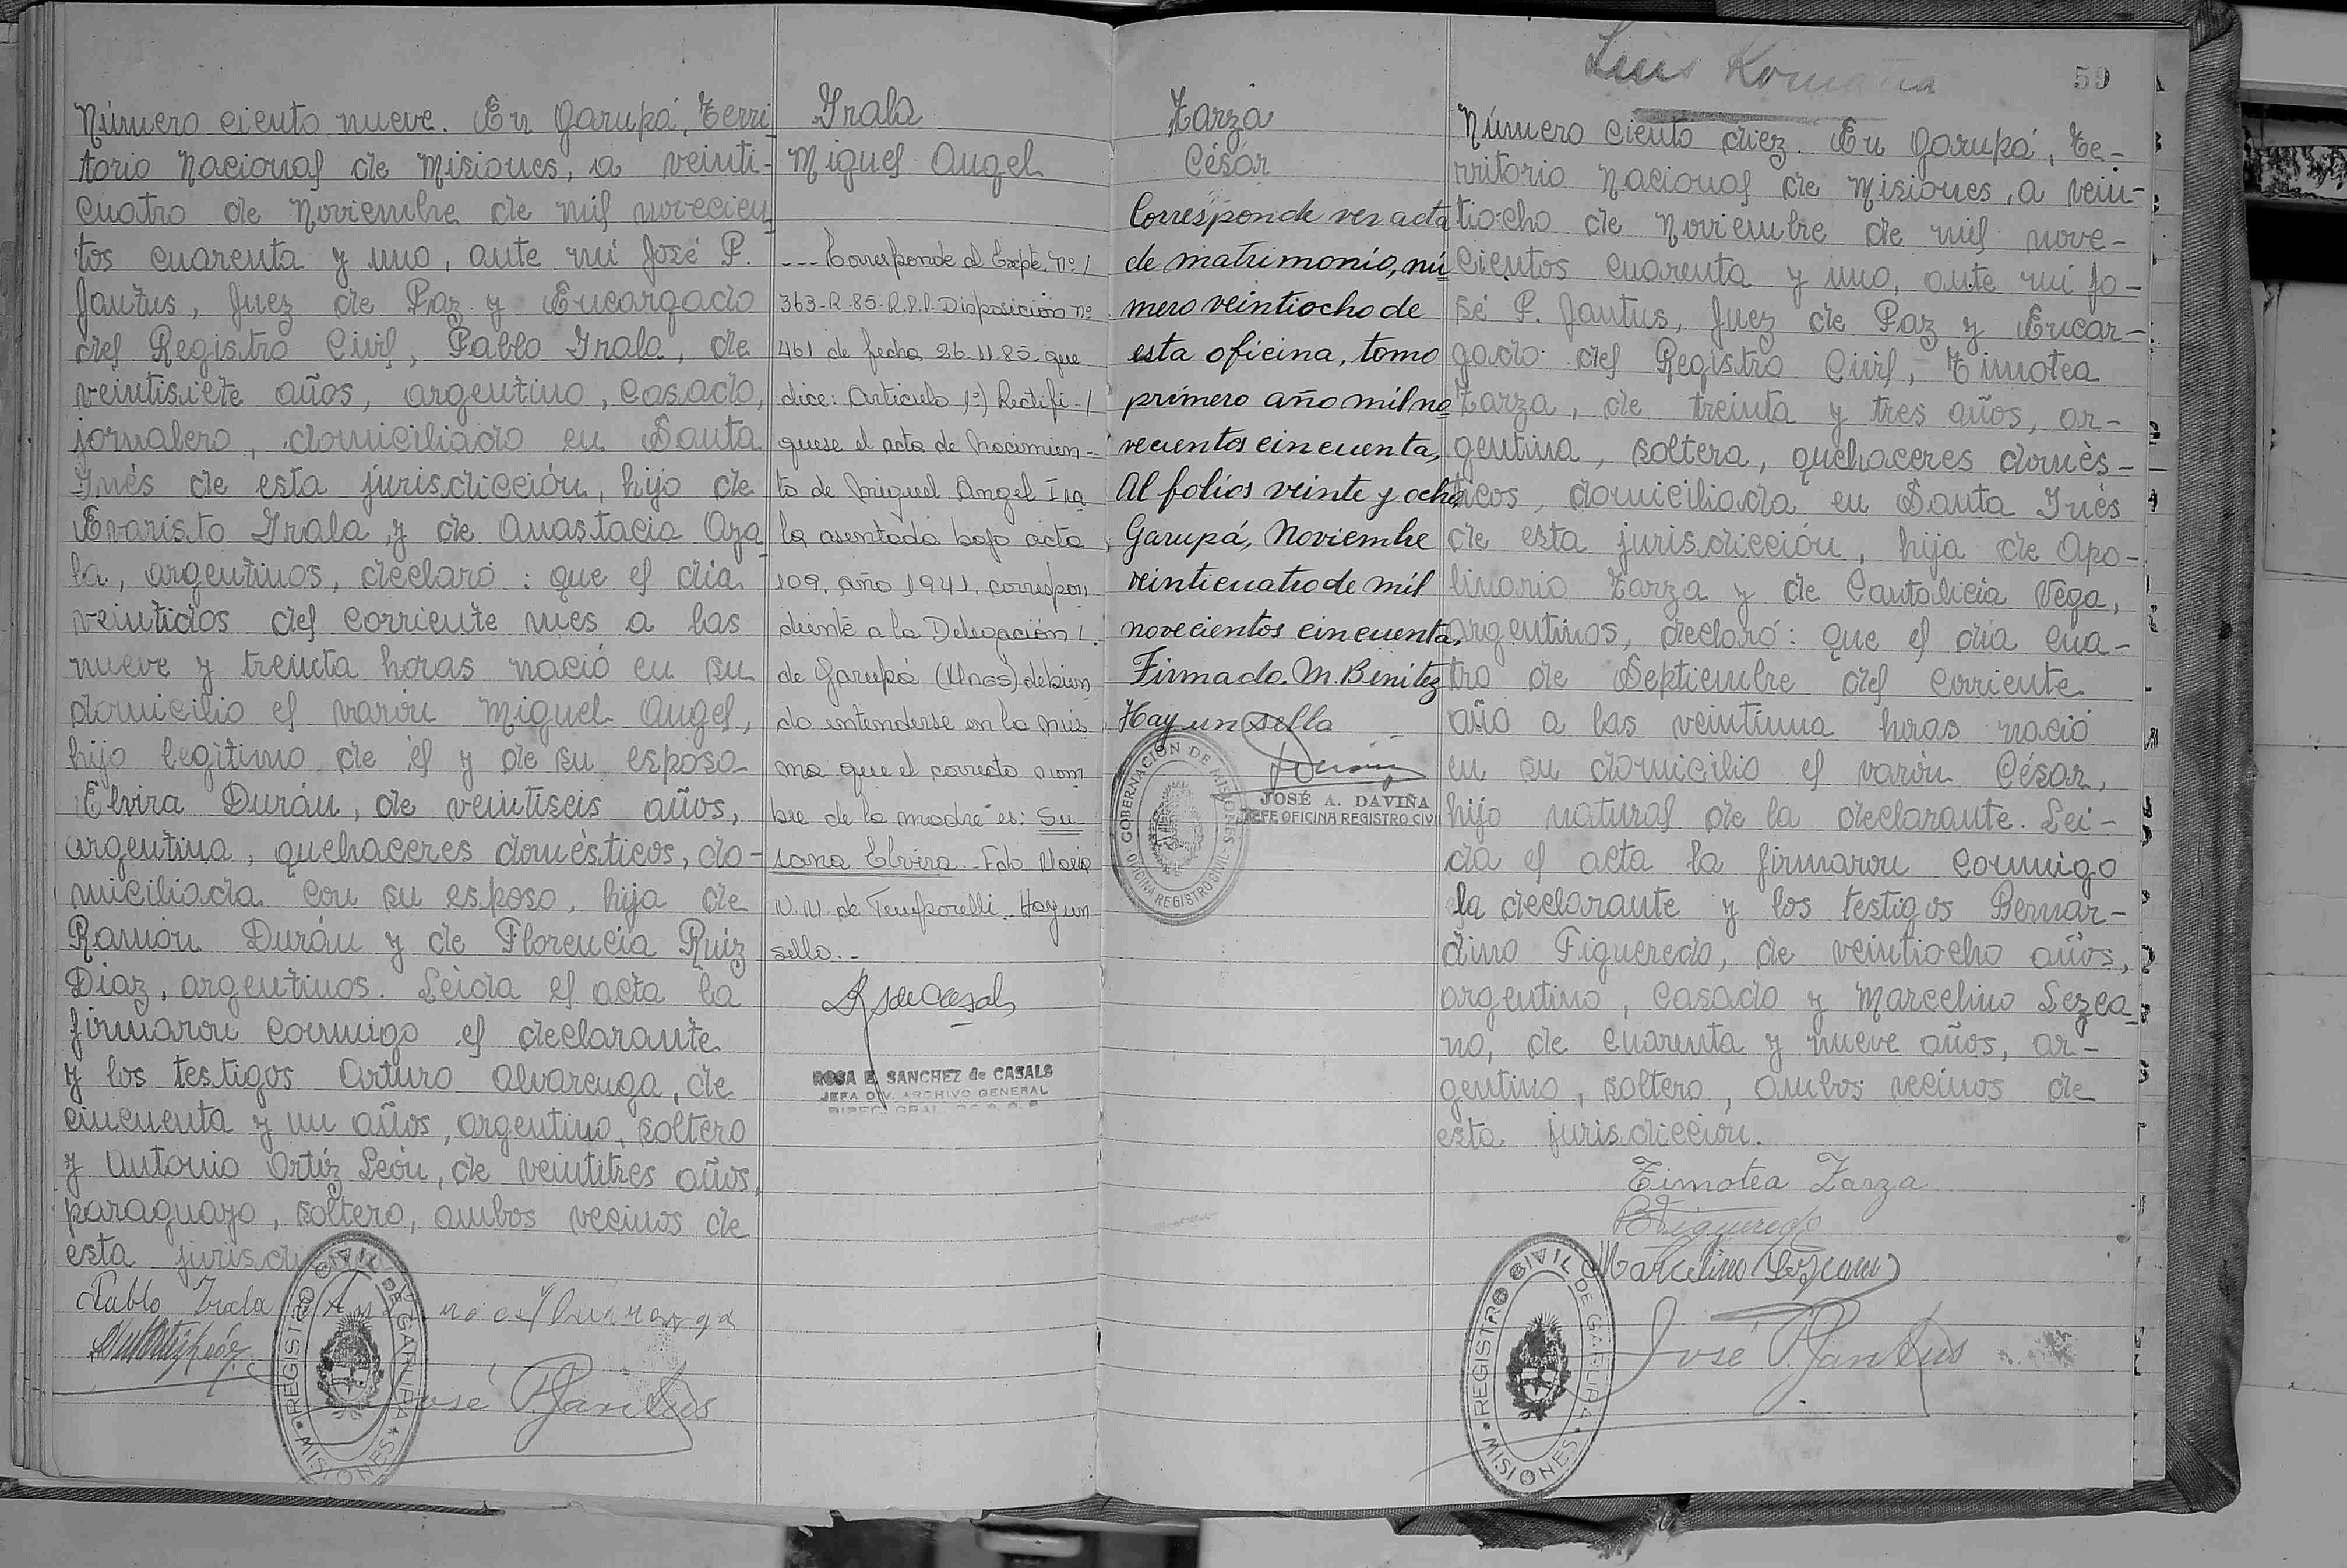 Número ciento nueve. En Garupá, Terri-
torio Nacional de Misiones, a veinti-
cuatro de Noviembre de mil novecien-
tos cuarenta y uno, ante mí José P.
Jantus, Juez de Paz y Encargado
del Registro Civil, Pablo Irala, de
veintisiete años, argentino, casado,
jornalero, domiciliado en Santa
Inés de esta jurisdicción, hijo de
Evaristo Irala y de Anastacia Aya-
la, argentinos, declaró: que el día
veintidos del corriente mes a las
nueve y treinta horas nació en su
domicilio el varón Miguel Angel,
hijo legítimo de él y de su esposa
Elvira Durán, de veintiseis años,
argentina, quehaceres domèsticos, do-
miciliada con su esposo, hija de
Ramón Durán y de Florencia Ruiz
Diaz, argentinos. Leída el acta la
firmaron conmigo el declarante
y los testigos Arturo Alvarenga, de
cincuenta y un años, argentino, soltero
y Antonio Ortíz León, de veintitrès años,
paraguayo, soltero, ambos vecinos de
esta
Pablo Irala
José P. Jantus
REGISTRO CIVIL DE GARUPA
MISIONES
Irala
Miguel Angel
--- Corresponde al Expte. Nº /
363-R-85-R.P.P. Disposición nº
461 de fecha 26.11.85 que
dice: Articulo 1º) Rectifi-/
quese el acta de Nacimien-
to de Miguel Angel Ira
la asentada bajo acta
109, año 1941, correspon
diente a la Delegación /.
de Garupá (Mnes) debien
do entenderse en la mis
ma que el correcto nom
bre de la madre es: Su-
sana Elvira - Fdo Maria
N. N. de Temporelli - Hay un
sello.-
ROSA E. SANCHEZ de CASALS
JEFA DIV. ARCHIVO GENERAL
Zarza
César
Corresponde ver acta
de matrimonio, nú
mero veintiocho de
esta oficina, tomo
primero año mil no
vecientos cincuenta,
Al folios veinte y ocho,
Garupá, Noviembre
veinticuatro de mil
novecientos cincuenta.
Firmado. M. Benítez
Hay un sello
GOBERNACIÓN DE MISIONES
OFICINA REGISTRO CIVIL
JOSÉ A. DAVIÑA
JEFE OFICINA REGISTRO CIVIL
Luis
59
Número ciento diez. En Garupá, Te-
rritorio Nacional de Misiones, a vein-
tiocho de Noviembre de mil nove-
cientos cuarenta y uno, ante mí Jo-
sé P. Jantus, Juez de Paz y Encar-
gado del Registro Civil, Timotea
Zarza, de treinta y tres años, ar-
gentina, soltera, quehaceres domès-
ticos, domiciliada en Santa Inés
de esta jurisdicción, hija de Apo-
linario Zarza y de Cantalicia Vega,
argentinos, declaró: que el día cua-
tro de Septiembre del corriente
año a las veintiuna horas nació
en su domicilio el varón César,
hijo natural de la declarante. Leí-
da el acta la firmaron conmigo
la declarante y los testigos Bernar-
dino Figueredo, de veintiocho años,
argentino, casado y Marcelino Lezca-
no, de cuarenta y nueve años, ar-
gentino, soltero, ambos vecinos de
esta jurisdicción.
Timotea Zarza
BFigueredo
Marcelino Lezcano
José P. Jantus
REGISTRO CIVIL DE GARUPA
MISIONES